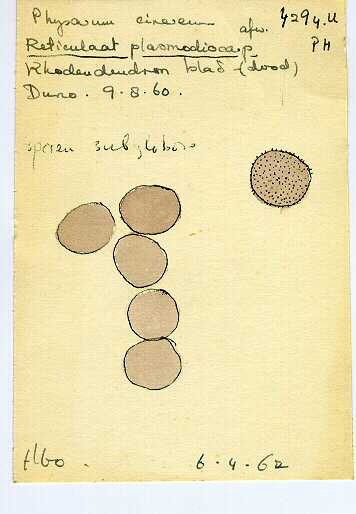 Physarum cinereum afw. 4294.U
Reticulaat plasmodiocarp PH
Rhodendendron blad (dood)
Duno. 9.8.60.
sporen subgloboso
Elbo.
6.4.62